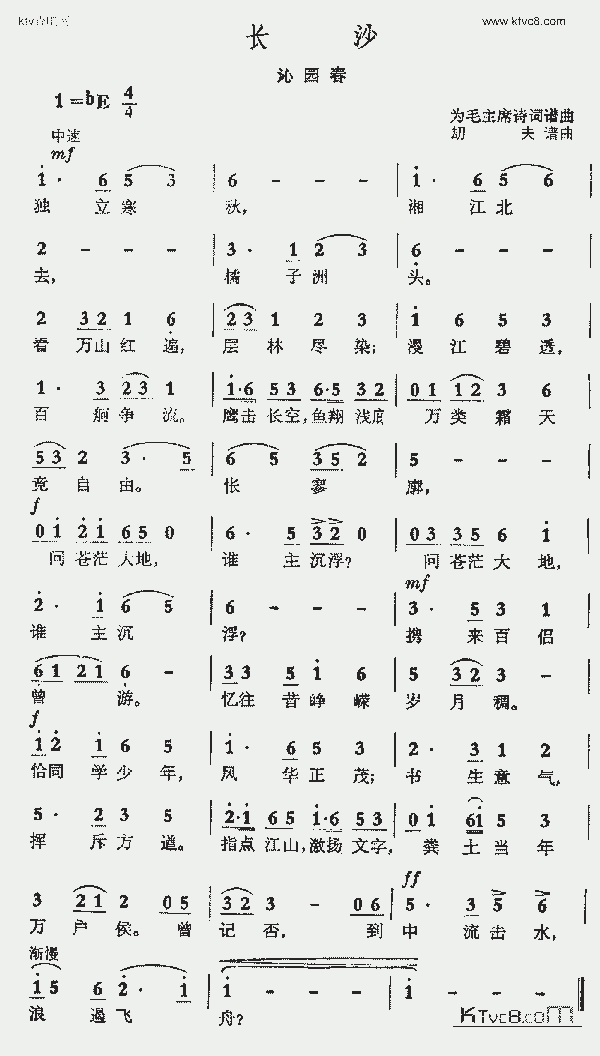 www.ktvc8.com
长 沙
沁园春
1=bE 4/4
为毛主席诗词谱曲
劫 夫 谱曲
中速
mf
1· 6 5 3 | 6 - - - | 1· 6 5 6 |
独 立寒 秋, 湘 江北
2 - - - | 3· 1 2 3 | 6 - - - |
去, 橘 子洲 头。
2 32 1 6 | 23 1 2 3 | 1 6 5 3 |
看 万山红遍, 层林尽染; 漫江碧透,
1· 3 23 1 | 1·6 53 6·5 32 | 01 12 3 6 |
百 舸争流。 鹰击长空,鱼翔浅底 万类霜天
53 2 3· 5 | 6 5 35 2 | 5 - - - |
竞自由。 怅 寥 廓,
f
01 21 65 0 | 6· 5 32 0 | 03 35 6 1 |
问苍茫大地, 谁 主沉浮? 问苍茫大地,
mf
2· 1 6 5 | 6 - - - | 3· 5 3 1 |
谁 主沉 浮? 携 来百侣
61 21 6 - | 33 5 1 6 | 5 32 3 - |
曾 游。 忆往昔峥嵘 岁月稠。
f
12 1 6 5 | 1· 6 5 3 | 2· 3 1 2 |
恰同学少年, 风 华正茂; 书 生意气,
5· 2 3 5 | 2·1 65 1·6 53 | 01 61 5 3 |
挥 斥方遒。 指点江山,激扬文字, 粪土当年
ff
3 21 2 05 | 32 3 - 06 | 5· 3 5 6 |
万户侯。曾 记否, 到 中 流击水,
渐慢
15 6 2· 1 | 1 - - - | 1 - - - ‖
浪 遏飞 舟?
KTvc8.com